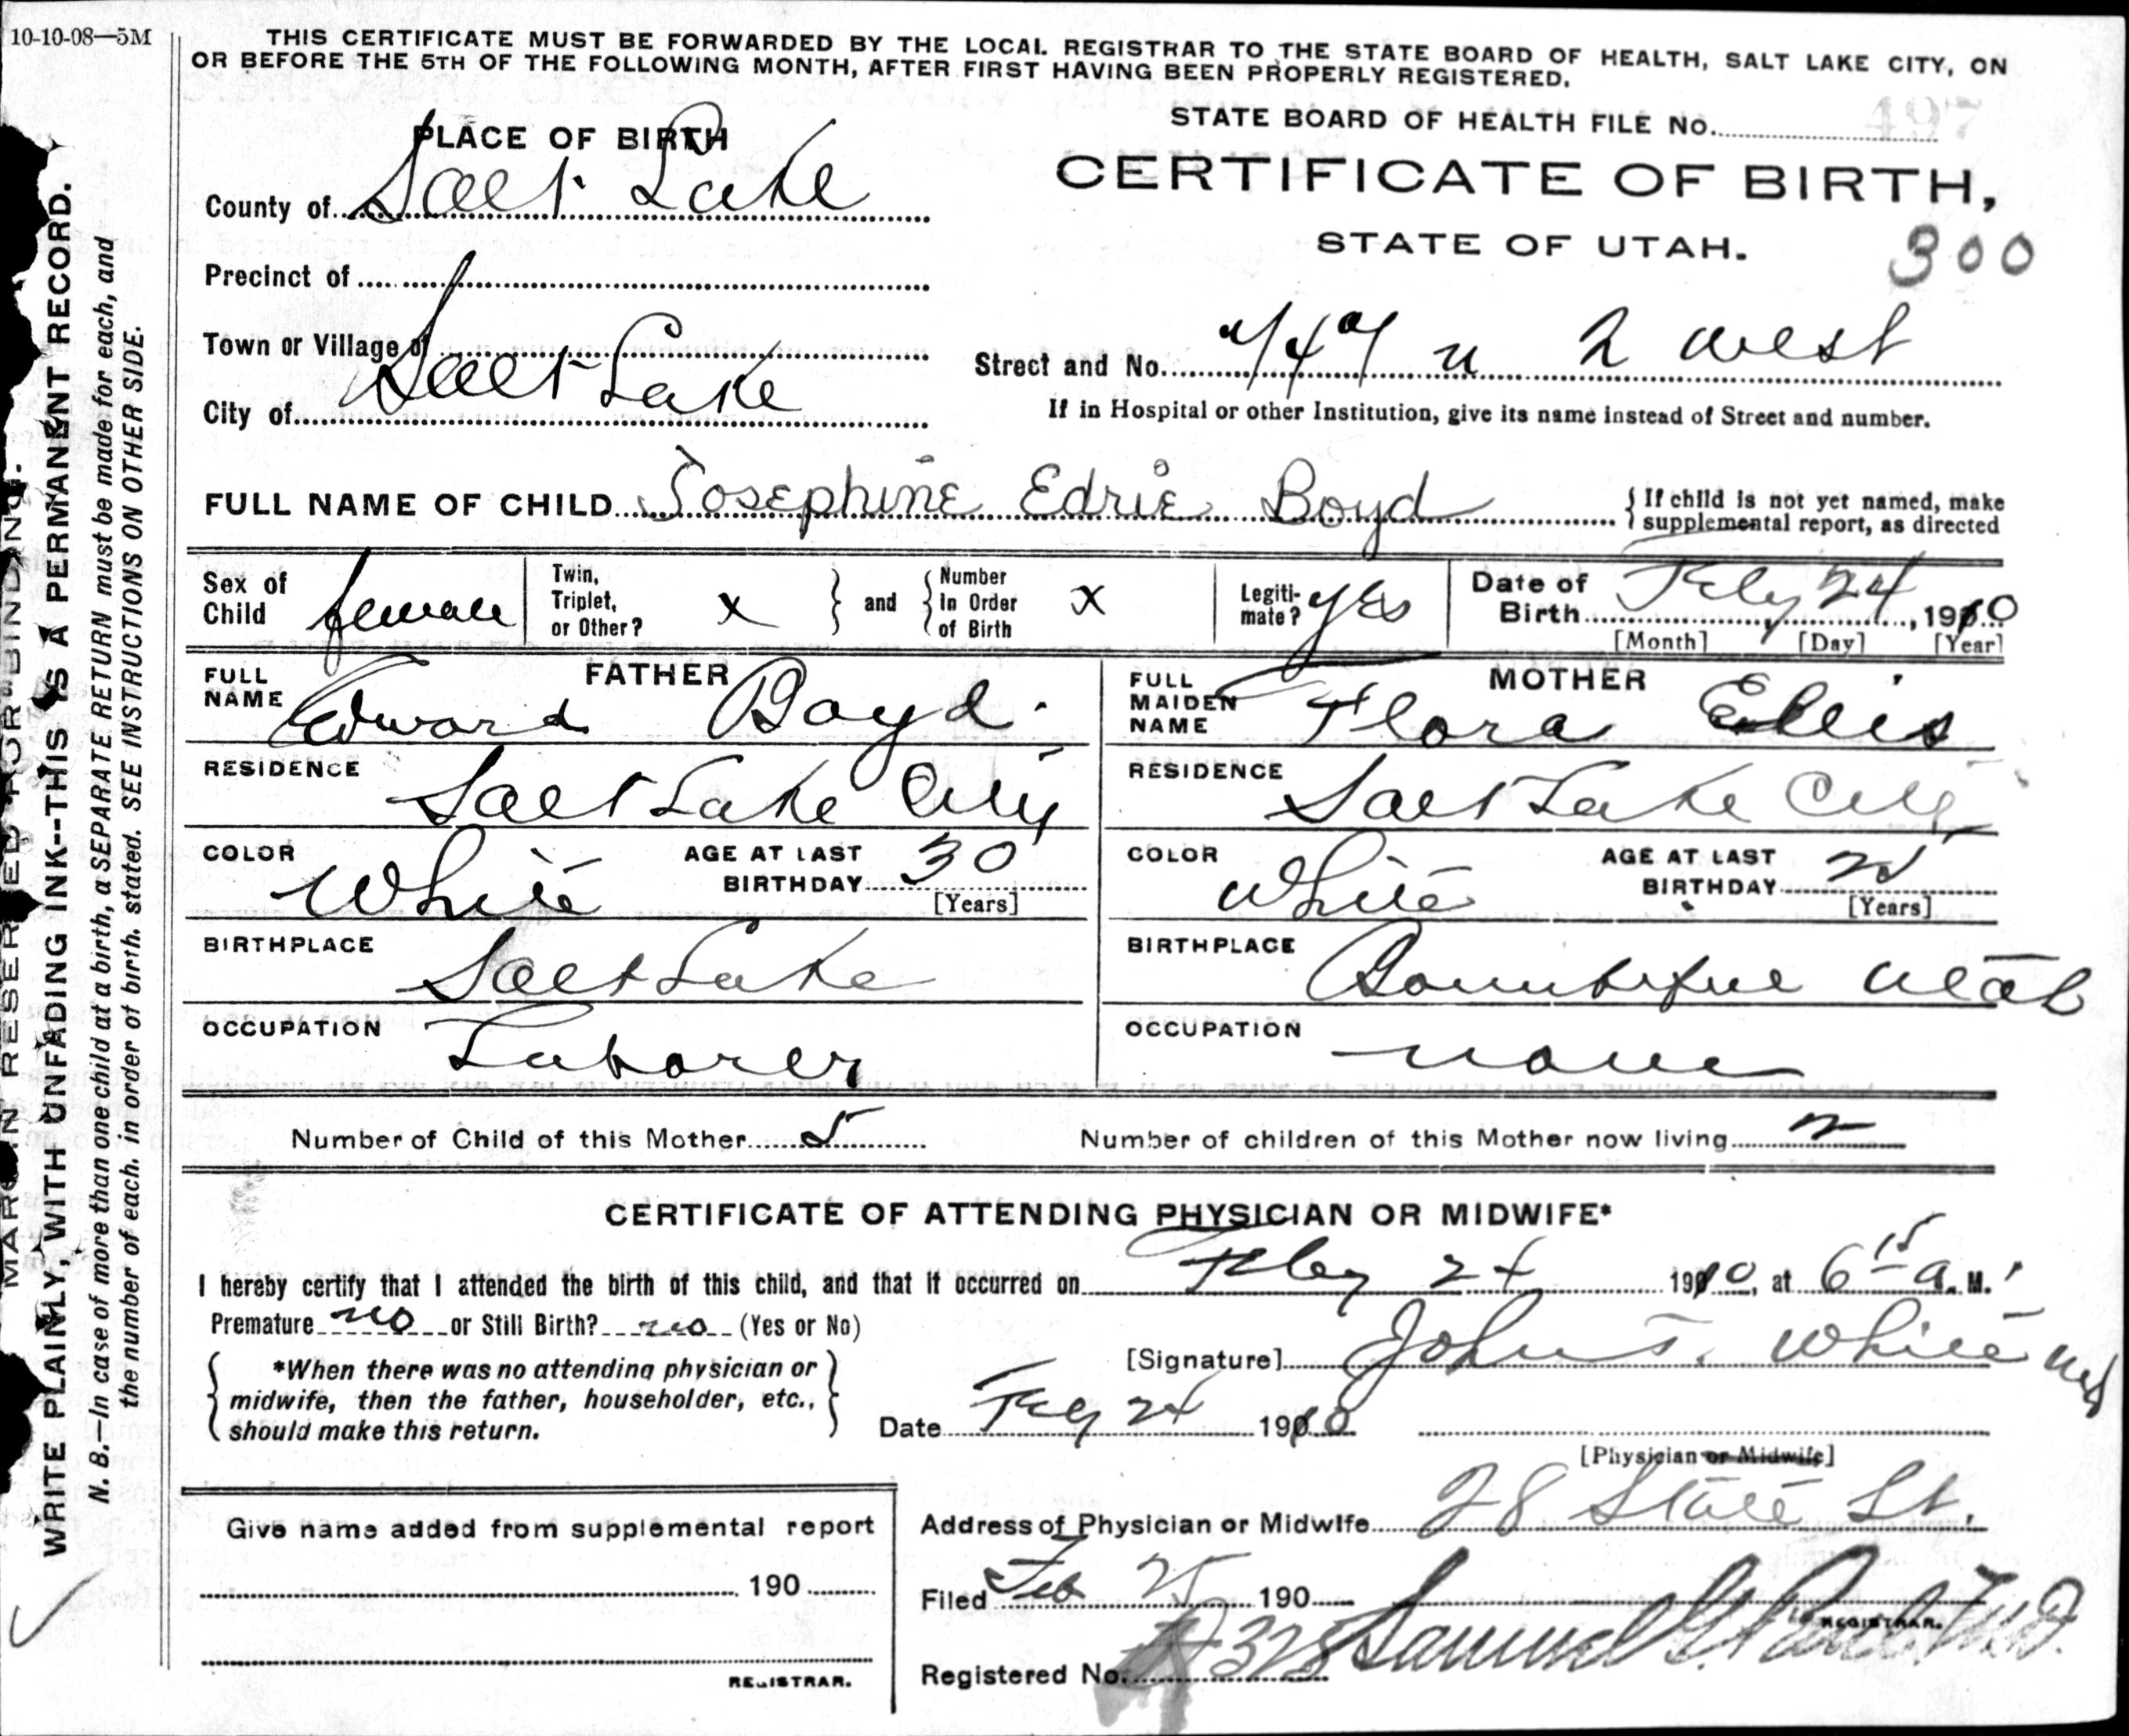 10-10-08—5M
THIS CERTIFICATE MUST BE FORWARDED BY THE LOCAL REGISTRAR TO THE STATE BOARD OF HEALTH, SALT LAKE CITY, ON
OR BEFORE THE 5TH OF THE FOLLOWING MONTH, AFTER FIRST HAVING BEEN PROPERLY REGISTERED.
MARGIN RESERVED FOR BINDING.
WRITE PLAINLY, WITH UNFADING INK--THIS IS A PERMANENT RECORD.
N. B.—In case of more than one child at a birth, a SEPARATE RETURN must be made for each, and
the number of each. in order of birth. stated. SEE INSTRUCTIONS ON OTHER SIDE.
PLACE OF BIRTH
County of Salt Lake
Precinct of
Town or Village of
City of Salt Lake
STATE BOARD OF HEALTH FILE No. 497
CERTIFICATE OF BIRTH,
STATE OF UTAH.
300
Street and No. 747 n 2 west
If in Hospital or other Institution, give its name instead of Street and number.
FULL NAME OF CHILD Josephine Edrie Boyd
{ If child is not yet named, make
supplemental report, as directed
Sex of Child female
Twin, Triplet, or Other? x } and { Number In Order of Birth x
Legiti-mate? yes
Date of Birth Feby 24, 1910
[Month] [Day] [Year]
FATHER
FULL NAME Edward Boyd.
RESIDENCE Salt Lake City
COLOR White
AGE AT LAST BIRTHDAY 30
[Years]
BIRTHPLACE Salt Lake
OCCUPATION Laborer
MOTHER
FULL MAIDEN NAME Flora Ellis
RESIDENCE Salt Lake City
COLOR White
AGE AT LAST BIRTHDAY
[Years]
BIRTHPLACE Bountiful Utah
OCCUPATION none
Number of Child of this Mother 5
Number of children of this Mother now living 2
CERTIFICATE OF ATTENDING PHYSICIAN OR MIDWIFE*
I hereby certify that I attended the birth of this child, and that it occurred on Feby 24 1910, at 6 15 a. M.
Premature no or Still Birth? no (Yes or No)
{ *When there was no attending physician or
midwife, then the father, householder, etc.,
should make this return. }
[Signature] John T. White MD
Date Feby 24 1910
[Physician or Midwife]
Address of Physician or Midwife 28 State St.
Give name added from supplemental report
190
REGISTRAR.
Filed Feb 25 190
Samuel G. Paul M.D.
REGISTRAR.
Registered No. 328